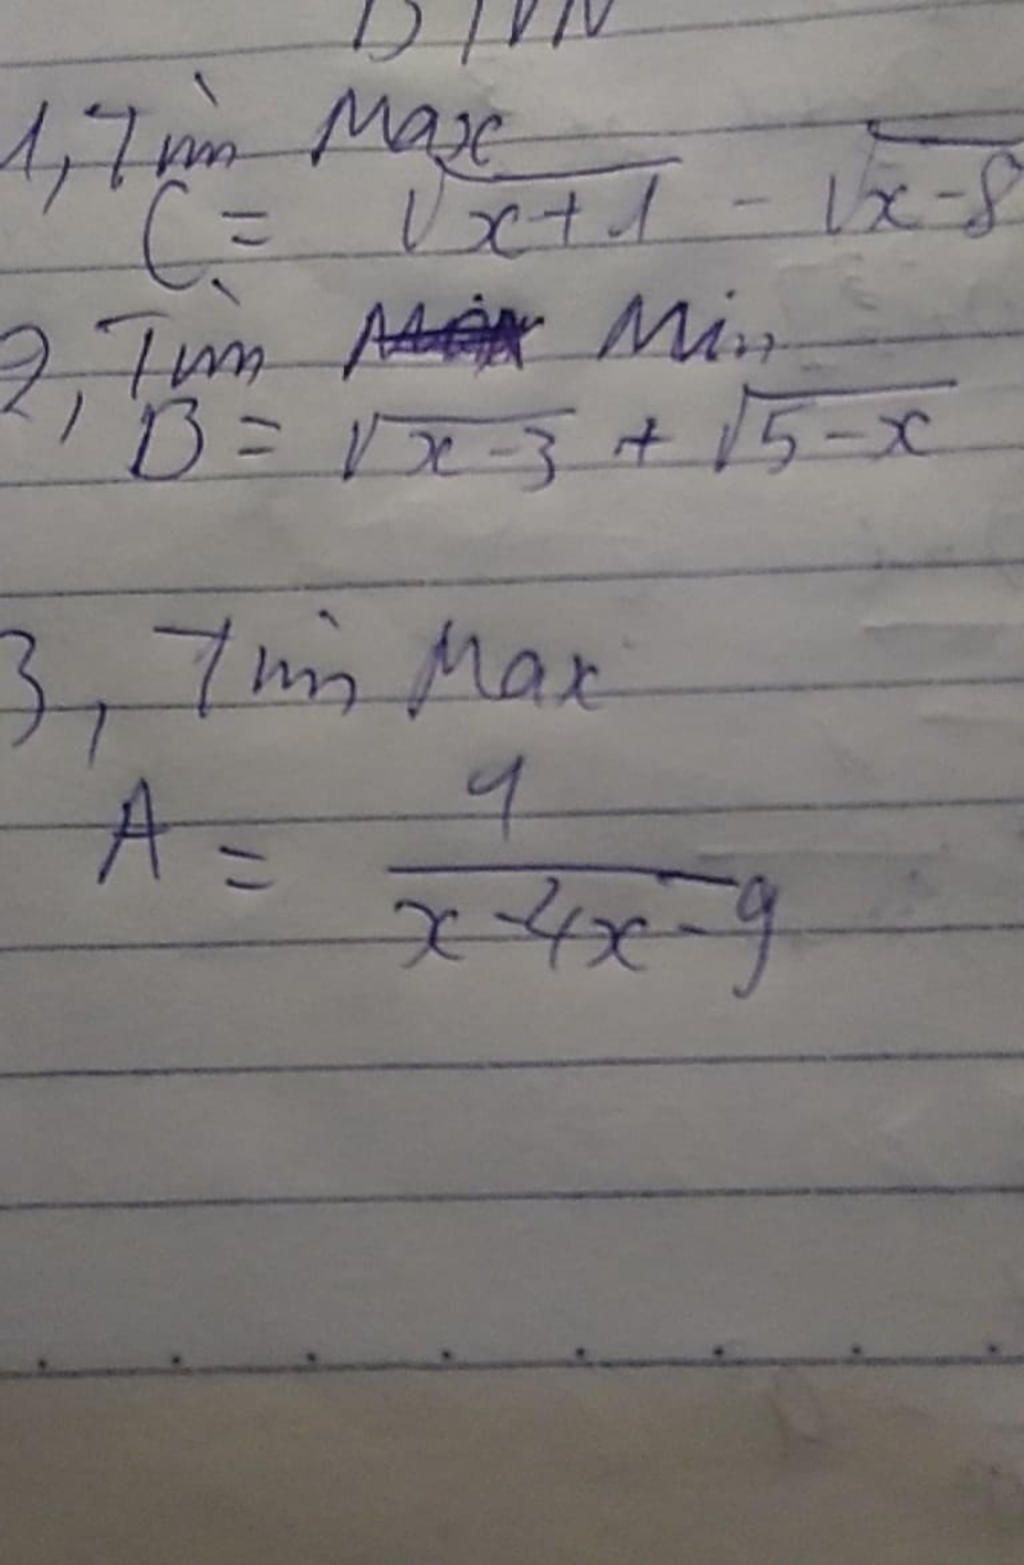 BTVN
1, Tìm Max
C = √x+1 - √x-8
2, Tìm Min
B = √x-3 + √5-x
3, Tìm Max
A = 1/x-4x-9